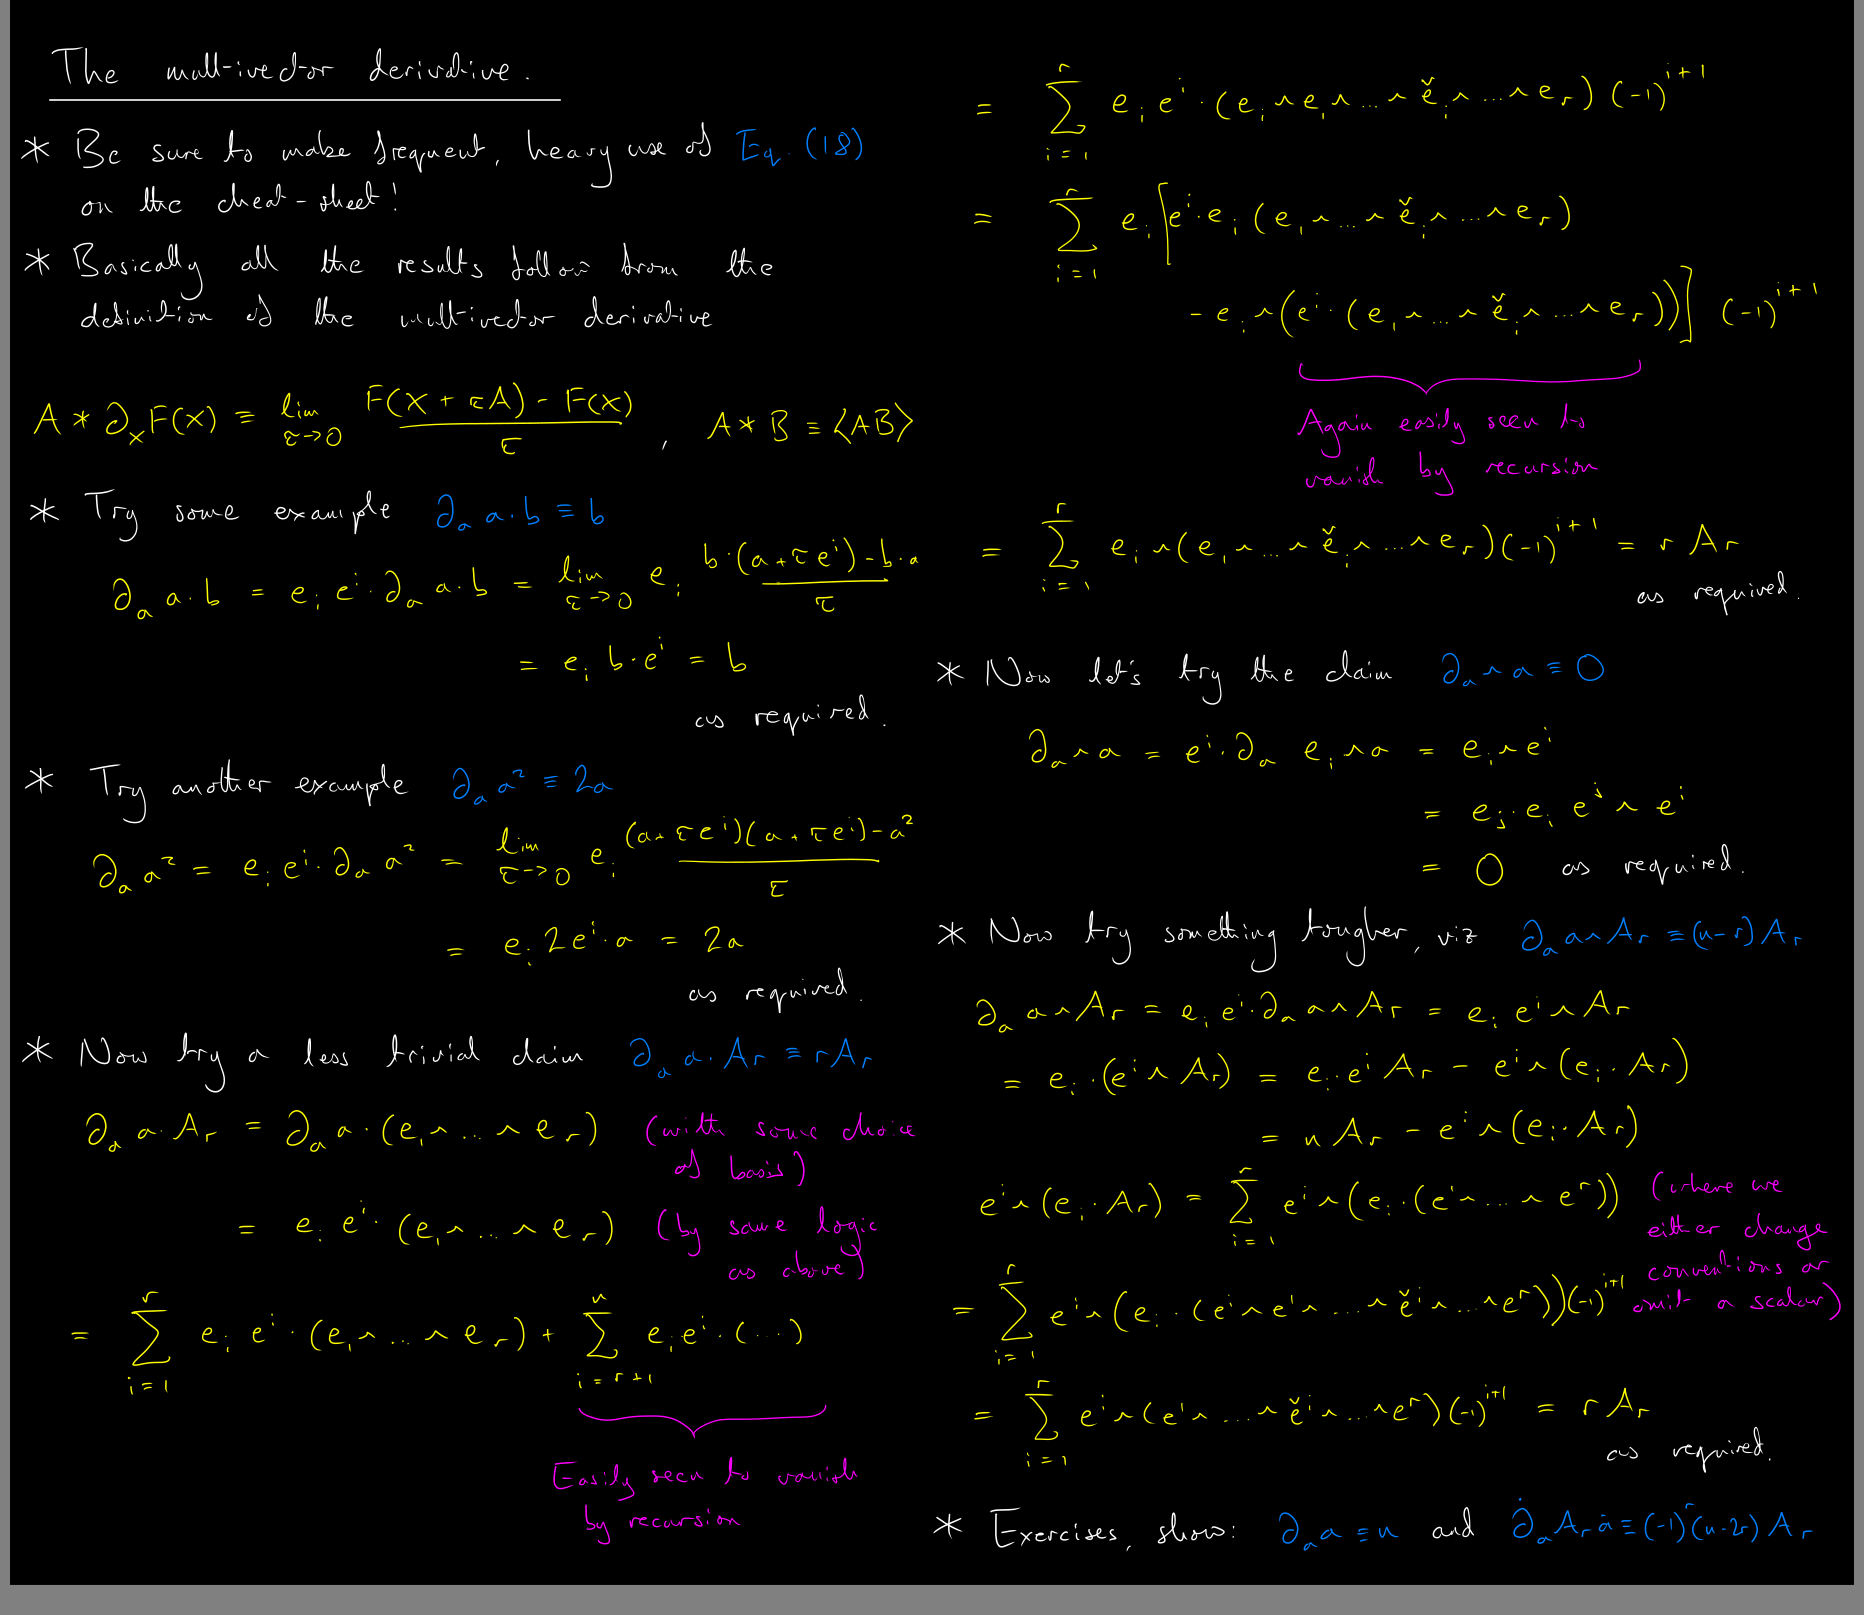 The multivector derivative.
* Be sure to make frequent, heavy use of Eq. (18)
on the cheat-sheet!
* Basically all the results follow from the
definition of the multivector derivative
A * ∂_X F(X) ≡ lim_{τ→0} (F(X + τA) - F(X))/τ , A * B ≡ ⟨AB⟩
* Try some example ∂_a a·b ≡ b
∂_a a·b = e_i e^i·∂_a a·b = lim_{τ→0} e_i (b·(a+τe^i) - b·a)/τ
= e_i b·e^i = b
as required.
* Try another example ∂_a a² ≡ 2a
∂_a a² = e_i e^i·∂_a a² = lim_{τ→0} e_i ((a+τe^i)(a+τe^i) - a²)/τ
= e_i 2e^i·a = 2a
as required.
* Now try a less trivial claim ∂_a a·A_r ≡ rA_r
∂_a a·A_r = ∂_a a·(e_1∧...∧e_r) (with some choice
of basis)
= e_i e^i·(e_1∧...∧e_r) (by same logic
as above)
= Σ_{i=1}^{r} e_i e^i·(e_1∧...∧e_r) + Σ_{i=r+1}^{n} e_i e^i·(...)
Easily seen to vanish
by recursion
= Σ_{i=1}^{r} e_i e^i·(e_i∧e_1∧...∧ě_i∧...∧e_r)(-1)^{i+1}
= Σ_{i=1}^{r} e_i [e^i·e_i (e_1∧...∧ě_i∧...∧e_r)
- e_i∧(e^i·(e_1∧...∧ě_i∧...∧e_r))] (-1)^{i+1}
Again easily seen to
vanish by recursion
= Σ_{i=1}^{r} e_i∧(e_1∧...∧ě_i∧...∧e_r)(-1)^{i+1} = r A_r
as required.
* Now let's try the claim ∂_a∧a ≡ 0
∂_a∧a = e^i·∂_a e_i∧a = e_i∧e^i
= e_j·e_i e^j∧e^i
= 0 as required.
* Now try something tougher, viz ∂_a a∧A_r ≡ (n-r)A_r
∂_a a∧A_r = e_i e^i·∂_a a∧A_r = e_i e^i∧A_r
= e_i·(e^i∧A_r) = e_i·e^i A_r - e^i∧(e_i·A_r)
= n A_r - e^i∧(e_i·A_r)
e^i∧(e_i·A_r) = Σ_{i=1}^{r} e^i∧(e_i·(e^1∧...∧e^r)) (where we
either change
conventions or
omit a scalar)
= Σ_{i=1}^{r} e^i∧(e_i·(e^i∧e^1∧...∧ě^i∧...∧e^r))(-1)^{i+1}
= Σ_{i=1}^{r} e^i∧(e^1∧...∧ě^i∧...∧e^r)(-1)^{i+1} = r A_r
as required.
* Exercises, show: ∂_a a ≡ n and ∂̇_a A_r ȧ ≡ (-1)^r (n-2r) A_r